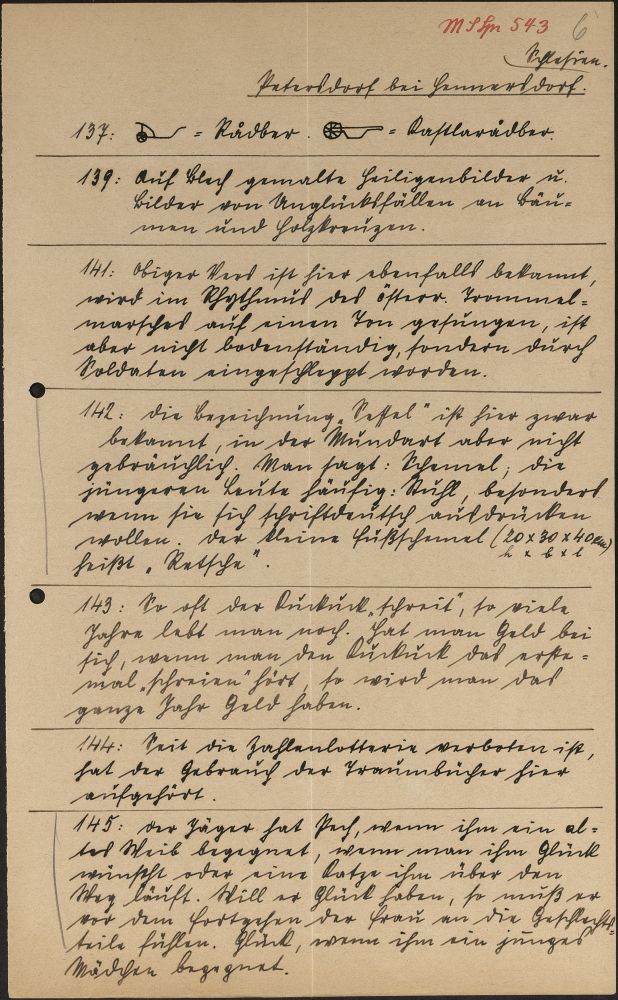 MSSpr 543 6
Schlesien.
Petersdorf bei Hennersdorf.
137: = Rådber. = Kastlarådber.
139: Auf Blech gemalte Heiligenbilder u.
Bilder von Unglücksfällen an Bäu=
men und Holzkreuzen.
141: Obiger Vers ist hier ebenfalls bekannt,
wird im Rhythmus des österr. Trommel=
marsches auf einen Ton gesungen, ist
aber nicht bodenständig, sondern durch
Soldaten eingeschleppt worden.
142: Die Bezeichnung „Sessel" ist hier zwar
bekannt, in der Mundart aber nicht
gebräuchlich. Man sagt: Schemel, die
jüngeren Leute häufig: Stuhl, besonders
wenn sie sich schriftdeutsch ausdrücken
wollen. Der kleine Fußschemel (20 x 30 x 40 cm)
h x b x l
heißt „Retsche".
143: So oft der Kuckuck „schreit", so viele
Jahre lebt man noch. Hat man Geld bei
sich, wenn man den Kuckuck das erste=
mal „schreien" hört, so wird man das
ganze Jahr Geld haben.
144: Seit die Zahlenlotterie verboten ist,
hat der Gebrauch der Traumbücher hier
aufgehört.
145: Der Jäger hat Pech, wenn ihm ein al=
tes Weib begegnet, wenn man ihm Glück
wünscht oder eine Katze ihm über den
Weg läuft. Will er Glück haben, so muß er
vor dem Fortgehen der Frau an die Geschlechts=
teile fühlen. Glück, wenn ihm ein junges
Mädchen begegnet.